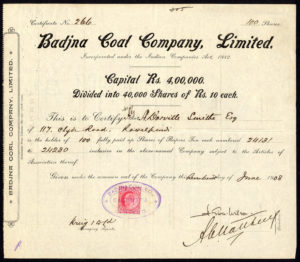 Certificate No. 266
100 Shares
Badjna Coal Company, Limited.
Incorporated under the Indian Companies Act, 1882
Capital Rs. 4,00,000.
Divided into 40,000 Shares of Rs. 10 each.
This is to Certify that Esq
of Clyde Road,
is the holder of 100 fully paid up Shares of Rupees Ten each numbered 24181
to 24280 inclusive in the above-named Company subject to the Articles of
Association thereof.
Given under the common seal of the Company this June 1908
BADJNA COAL COMPANY, LIMITED.